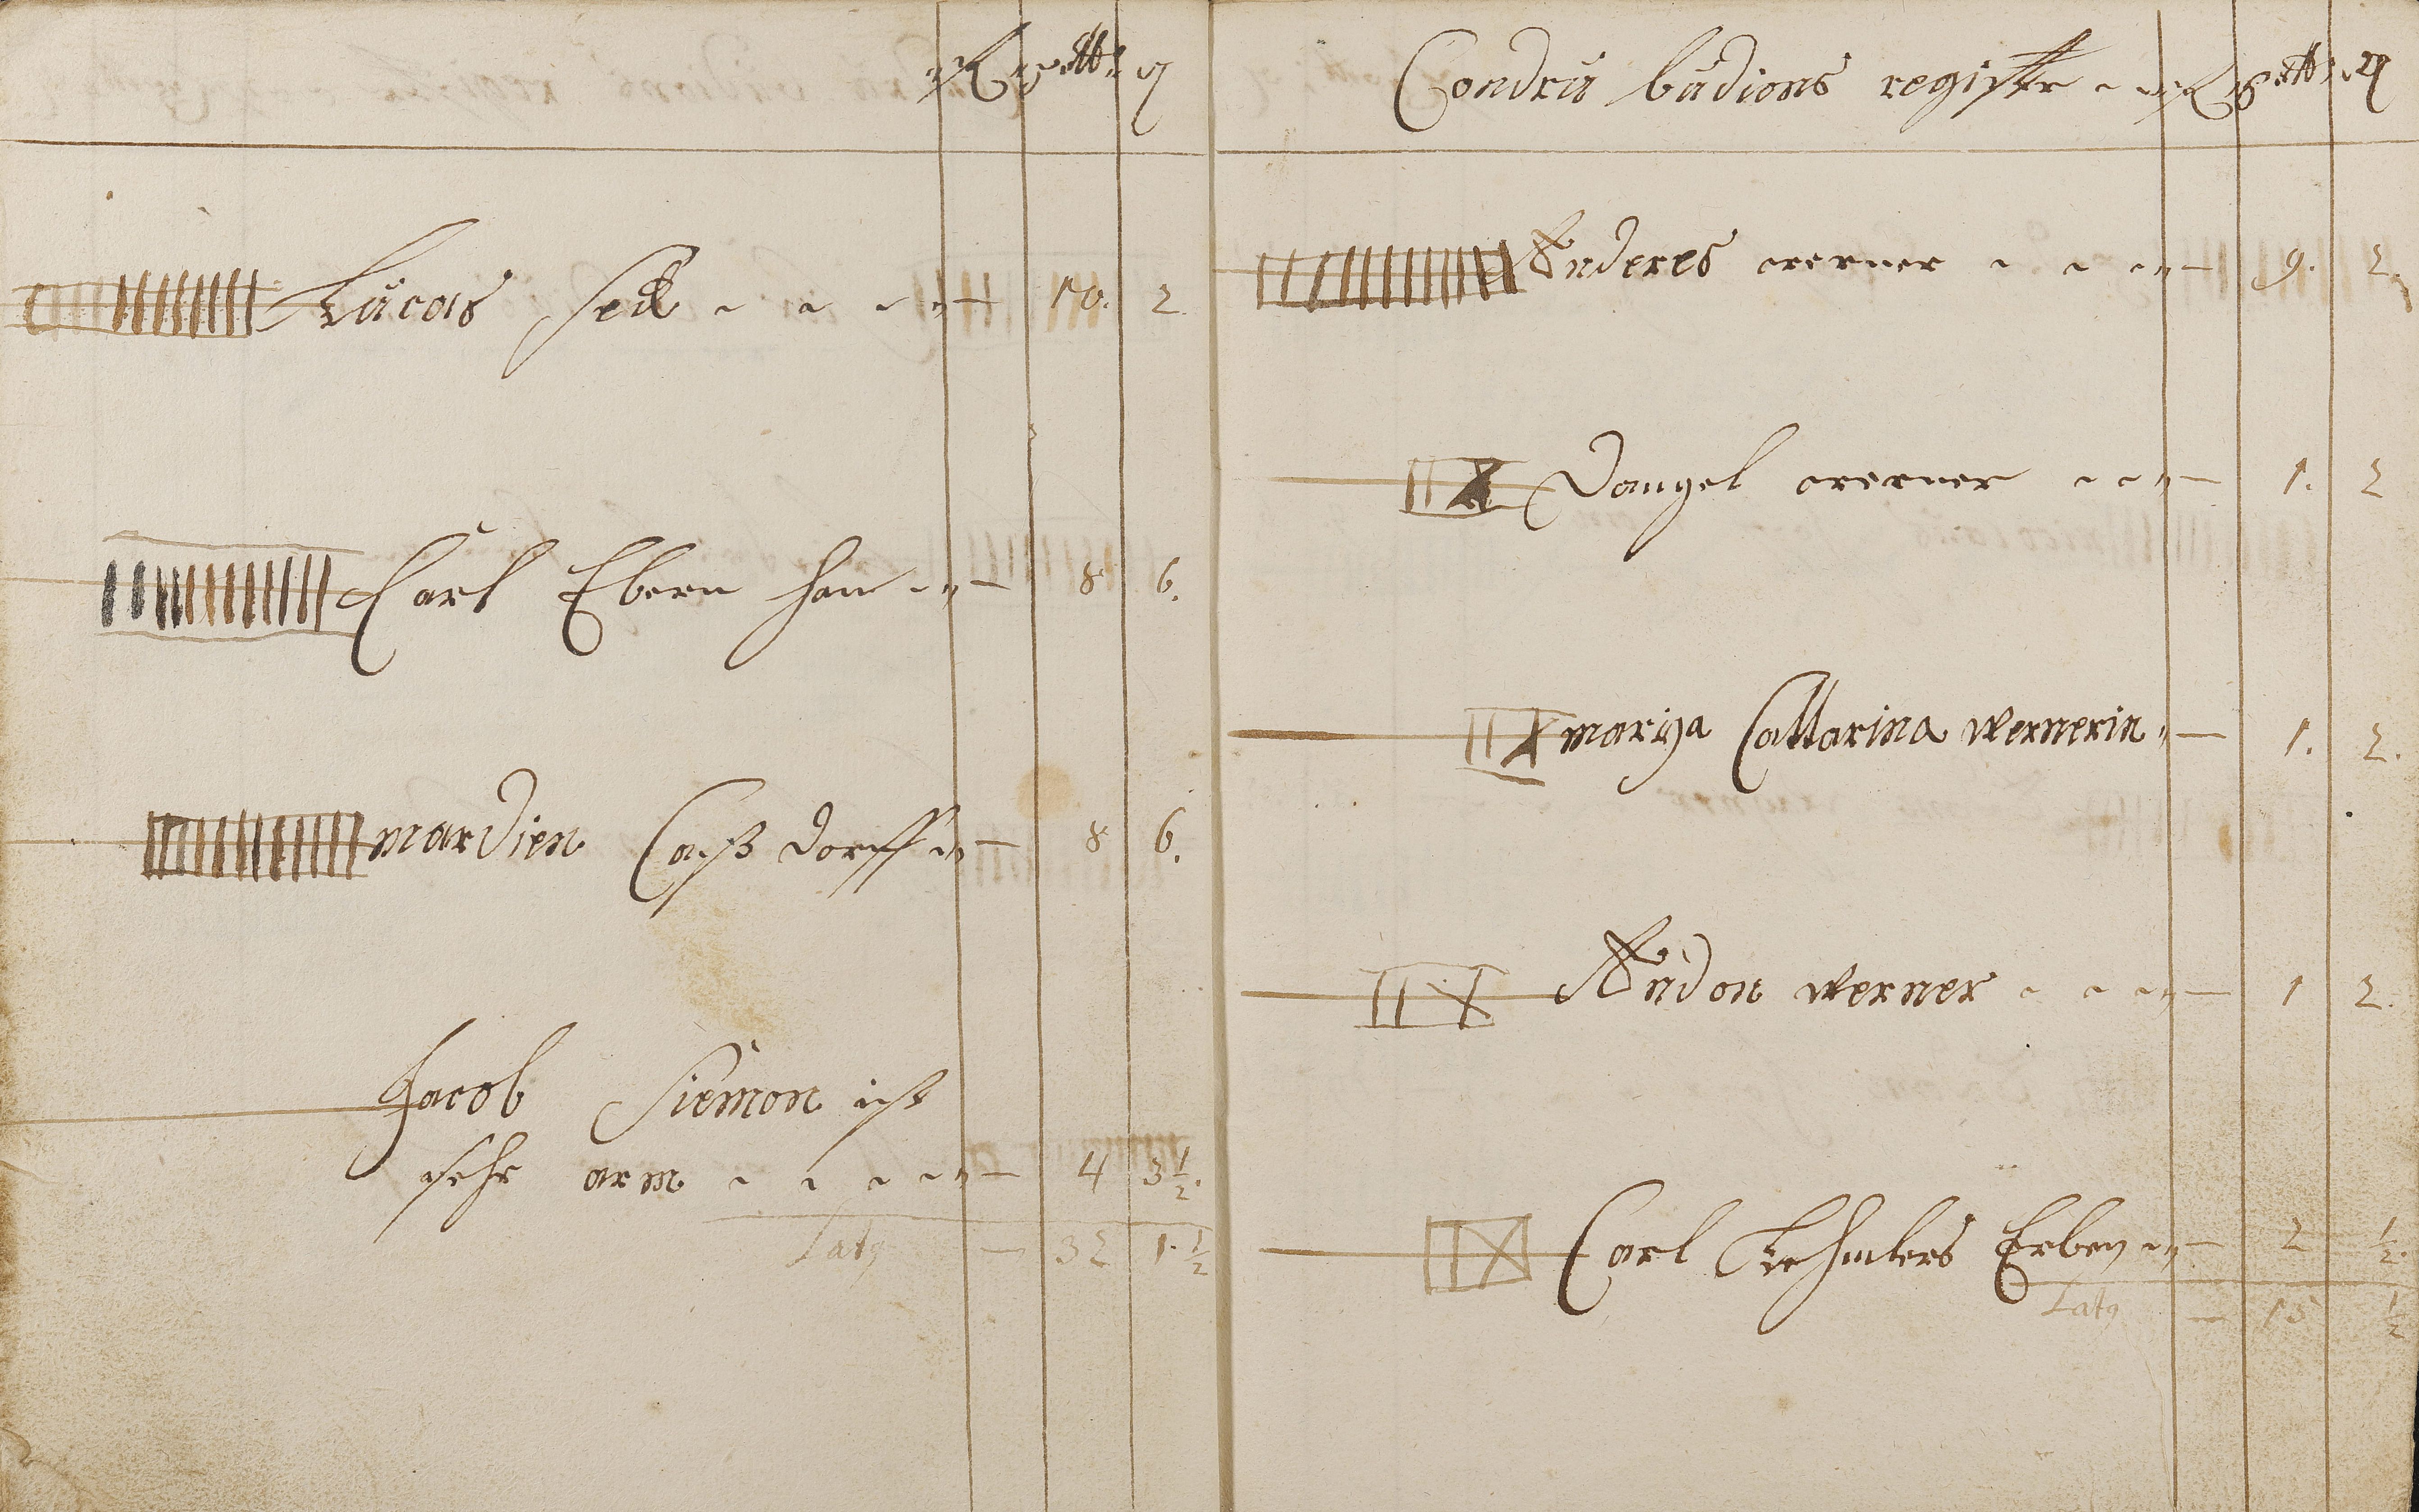 Lucas seel — 10. 2.
Carl Ebern han — 8 6.
mardien Caßdorff — 8 6.
Jacob Siemon ist
sehr arm — 4 3 1/2.
Latg — 32 1. 1/2
Condrübudions register
Anderes werner — 9. 2.
Dangel werner — 1. 2
mariya Cattarina wernerin — 1. 2.
Andon werner — 1 2.
Carl Erben — 2 1/2.
Latg — 15 1/2